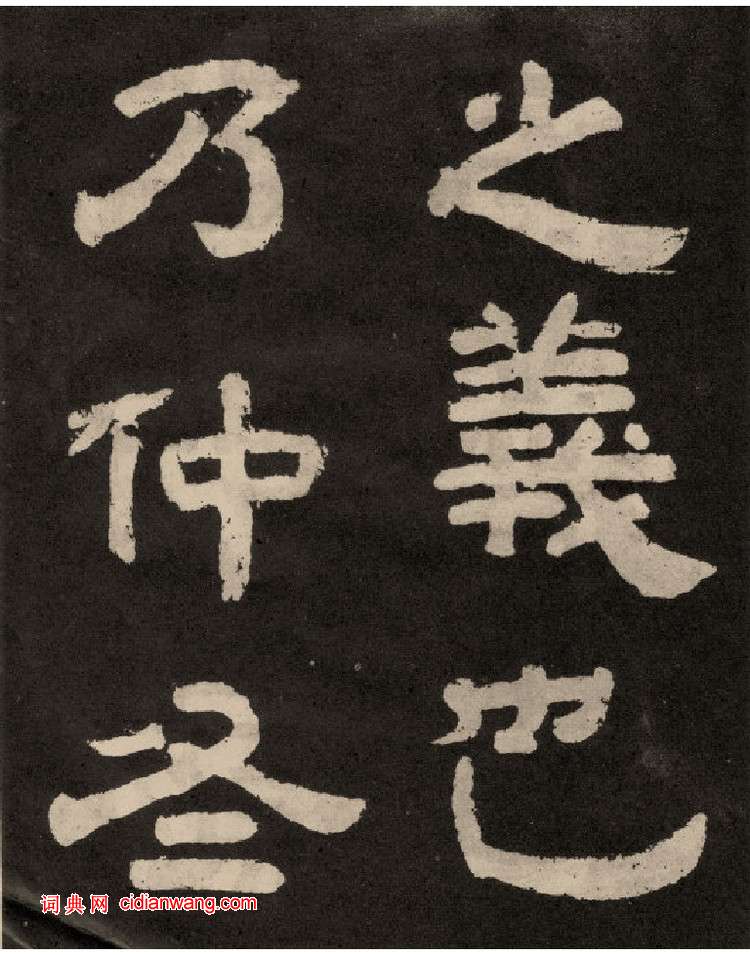 之義也
乃仲冬
词典网 cidianwang.com